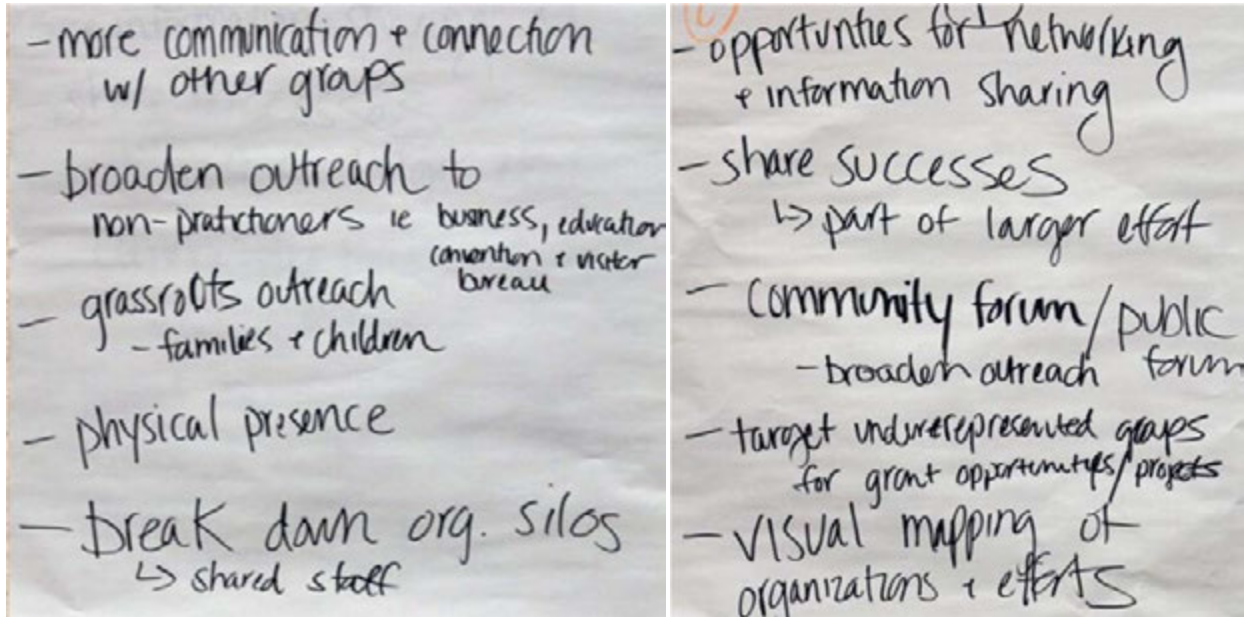 - more communication + connection
w/ other groups
- broaden outreach to
non-pratictioners ie business, education
convention + visitor
bureau
- grassroots outreach
- families + children
- physical presence
- break down org. silos
↳ shared staff
- opportunties for networking
+ information sharing
- share successes
↳ part of larger effort
- community forum / public
forum
- broaden outreach
- target underrepresented groups
for grant opportunities/projects
- visual mapping of
organizations + efforts